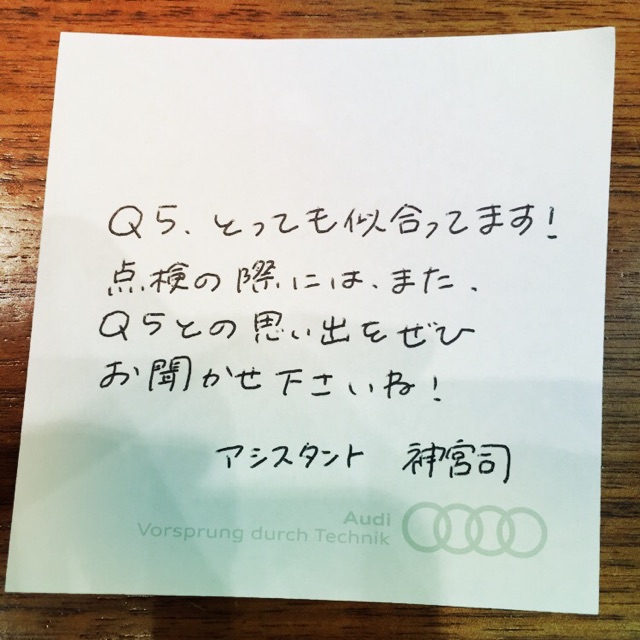 Q5、とっても似合ってます!
点検の際には、また、
Q5との思い出をぜひ
お聞かせ下さいね!
アシスタント 神宮司
Audi
Vorsprung durch Technik